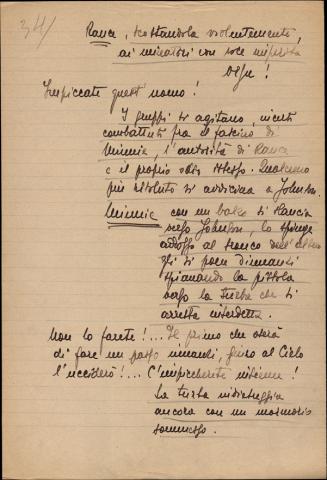 34/
Rance, scostandola violentemente,
ai minatori con voce
Impiccate quest'uomo!
I gruppi si agitano, incerti
combattuti fra il fascino di
Minnie, l'autorità di Rance
e il proprio odio stesso. Qualcuno
più risoluto si avvicina a Johnson.
Minnie con un balzo si slancia
verso Johnson, lo spinge
addosso al tronco dell'albero
gli si pone dinnanzi
spianando la pistola
verso la turba che si
arresta interdetta.
Non lo farete!... Il primo che oserà
di fare un passo innanzi, giuro al Cielo
l'ucciderò!... C'impiccherete insieme!
La turba indietreggia
ancora con un mormorio
sommesso.